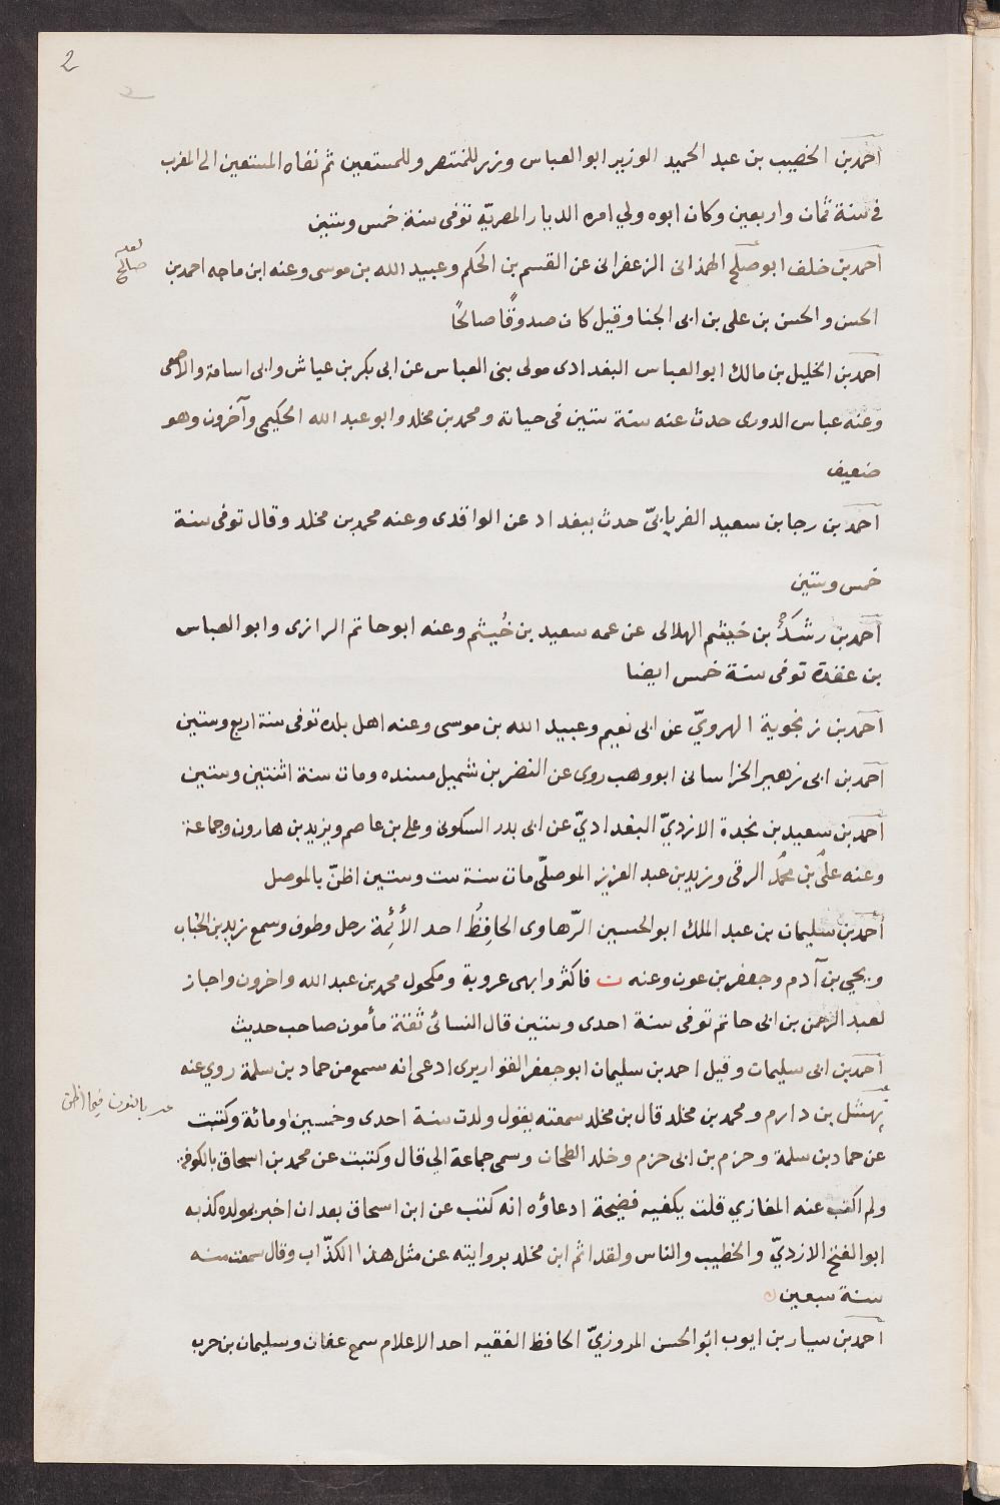 2
احمد بن الخصيب بن عبد الحميد الوزير ابو العباس وزير للمنتصر وللمستعين ثم نفاه المستعين الى المغرب
فى سنة ثمان واربعين وكان ابوه ولي امره الديار المصريّه توفى سنة خمس وستين
احمد بن خلف ابو صلح الهمذانى الزعفرانى عن القسم بن الحكم وعبيد الله بن موسى وعنه ابن ماجه احمد بن
لعد صالح
الحسن والحسن بن على بن ابى الحنا وقيل كان صدوقًا صالحًا
احمد بن الخليل بن مالك ابو العباس البغدادى مولى بنى العباس عن ابى بكر بن عياش وابى اسامة والاصمعى
وعنه عباس الدورى حدث عنه سنة ستين فى حياته ومحمد بن مخلد وابو عبد الله الحكيمى وآخرون وهو
ضعيف
احمد بن رجا بن سعيد الفريابىّ حدث ببغداد عن الواقدى وعنه محمد بن مخلد وقال توفى سنة
خمس وستين
احمد بن رشَدُ بن خيثم الهلالى عن عمه سعيد بن خُيثم وعنه ابو حاتم الرازى وابو العباس
بن عقدة توفى سنة خمس ايضا
احمد بن زنجوية الهرويّ عن ابى نعيم وعبيد الله بن موسى وعنه اهل بلده توفى سنة اربع وستين
احمد بن ابى زهير الخراسانى ابو وهب روى عن النضر بن شميل مسنده ومات سنة اثنتين وستين
احمد بن سعيد بن نجدة الازديّ البغداديّ عن ابى بدر السكونى وعلى بن عاصم ويزيد بن هارون وجماعة
وعنه علىُ بن محمدُ الرقى ويزيد بن عبد العزيز الموصلّى مات سنة ست وستين اظنّ بالموصل
احمد بن سليمان بن عبد الملك ابو الحسين الرّهاوى الحافِظُ احد الأئِمة رحل وطوف وسمع زيد بن الحباب
ويحيى بن آدم وجعفر بن عون وعنه ت فاكثر وابى عروبة ومكحول محمد بن عبد الله واخرون واجاز
لعبد الرحمن بن ابى حاتم توفى سنة احدى وستين قال النسائى ثقة مأمون صاحب حديث
احمد بن ابى سليمات وقيل احمد بن سليمان ابو جعفر القواريرى ادعى انه سمع من حماد بن سلمة روى عنه
نهشل بن دارم ومحمد بن مخلد قال بن مخلد سمعته يقول ولدت سنة احدى وخمسين ومائة وكتبت
بالنون فيما اظن
عن حماد بن سلمة وحزم بن ابى حزم وخلد الطحان وسمى جماعة الى قال وكتبت عن محمد بن اسحاق بالكوفة
ولم اكتب عنه المغازي قلت يكفيه فضيحة ادعاؤه انه كتب عن ابن اسحاق بعد ان اخبر بمولده كذبه
ابو الفتح الازديّ والخطيب والناس ولقد اثم ابن مخلد بروايته عن مثل هذا الكذّاب وقال سمعت منه
سنة سبعين
احمد بن سيار بن ايوب ابُو الحسن المروزيّ الحافظ الفقيه احد الاعلام سمع عفان وسليمان بن حرب